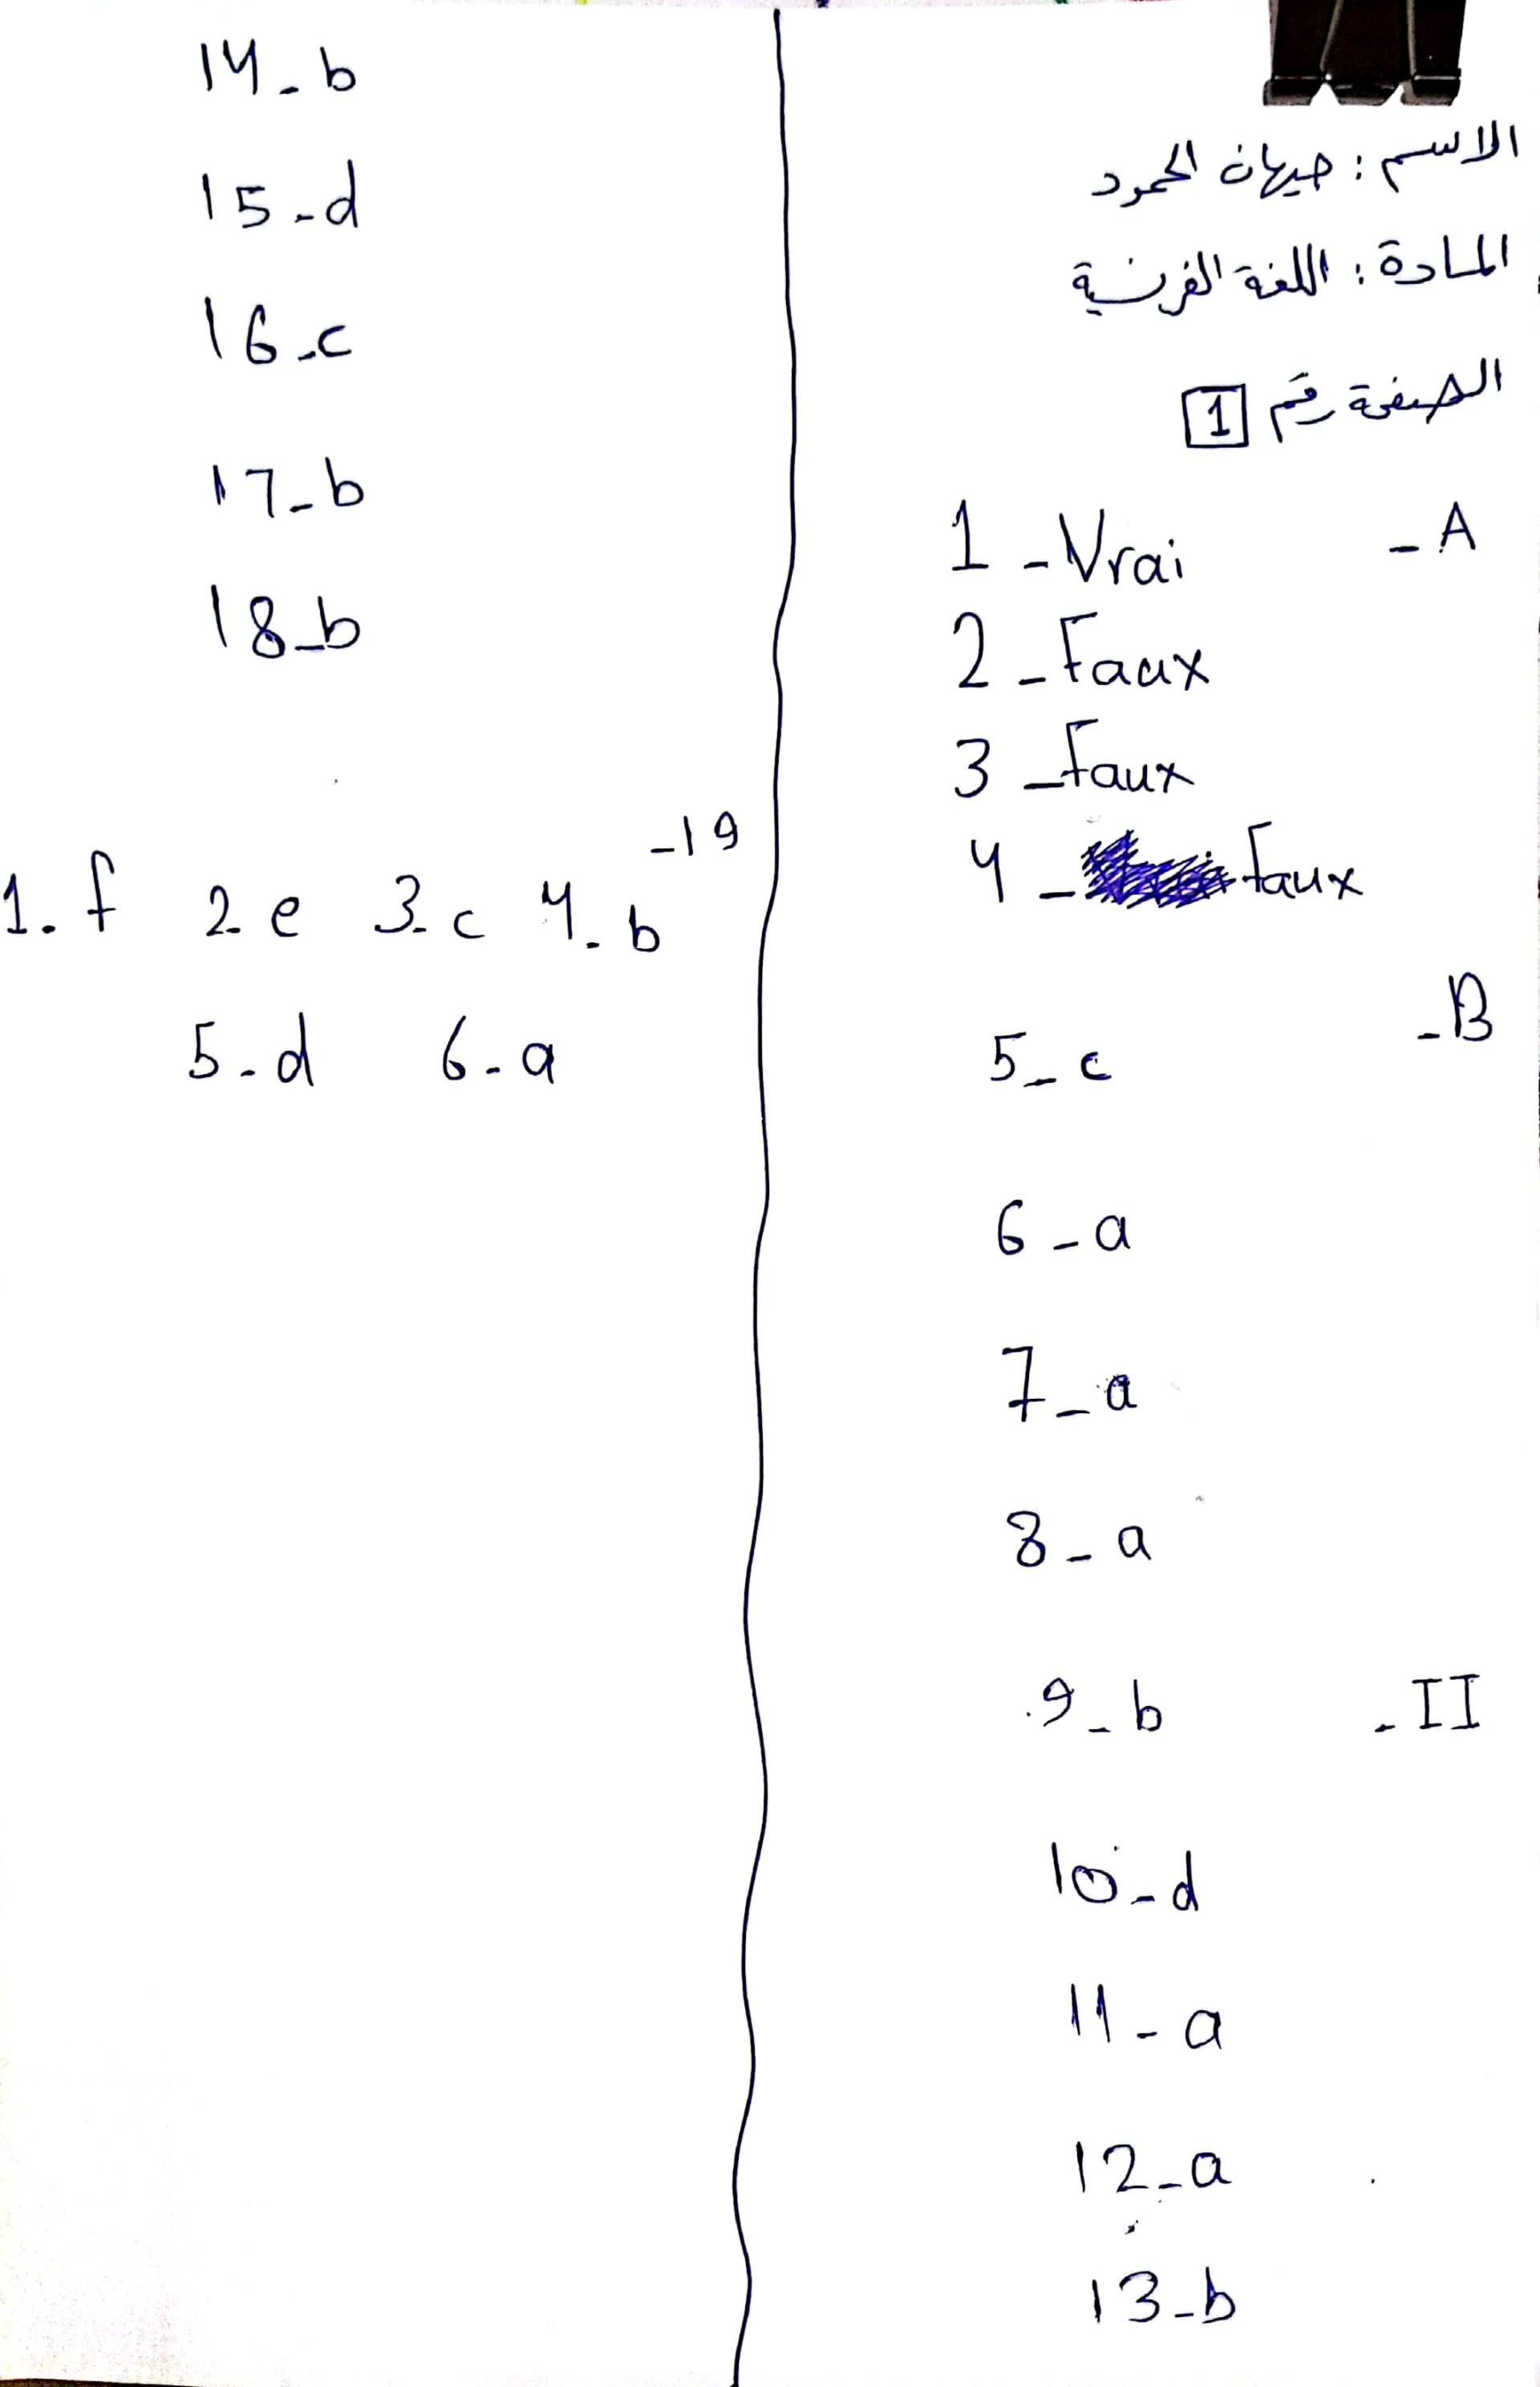 الاسم : جيهان الحمود
المادة : اللغة الفرنسية
الصفحة رقم 1
A -
1 - Vrai
2 - Faux
3 - Faux
4 - Faux
B -
5 - c
6 - a
7 - a
8 - a
II -
9 - b
10 - d
11 - a
12 - a
13 - b
14 - b
15 - d
16 - c
17 - b
18 - b
19 -
1. f 2. e 3. c 4. b
5. d 6. a